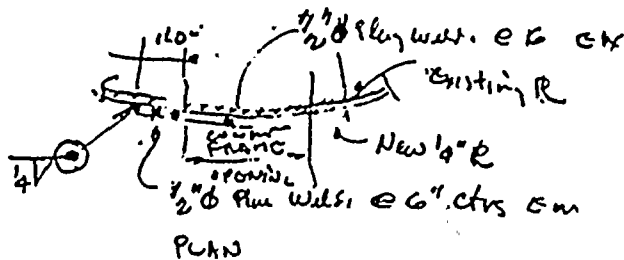 1'-0"
1/2"Ø Plug Welds @ 6
Existing PL
New 1/4" PL
FRAME
OPENING
1/4
1/2"Ø Plug Welds @ 6" ctrs
PLAN